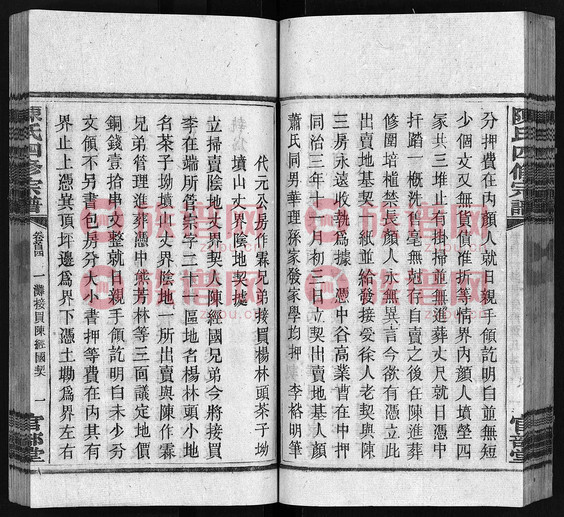 陳氏四修宗譜
官部堂
分押費在內顏人就日親手領訖明白並無短
少個文又無貨債准折等情界內顏人墳塋四
冢共三堆止有掛掃並無進葬丈尺就日憑中
扦踏一概洗售毫無剋存自賣之後任陳進葬
修圍培植禁長顏人並無異言今欲有憑立此
出賣地基契一紙並給發接愛徐人老契與陳
三房永遠收執爲據　憑中谷高業曹在中押
同治三年十一月初三日立契出賣地基人顏
蕭氏同男華理孫家發家學均押　李裕明筆
代元公房作霖兄弟接買楊林頭茶子坳
墳山丈界陰地契據
立掃賣陰地丈界契人陳經國兄弟今將接買
李在端所管宗字二十七區地名楊林頭小地
名茶子坳墳山丈界陰地一所出賣與陳作霖
兄弟管理進葬憑中熊芳林等三囬議定地價
銅錢壹拾串文整就日親手領訖明白未少分
文領不另書包房分大小書押等費在內其有
界止上憑巽頂坪邊爲界下憑土坳爲界左右
陳氏四修宗譜
卷四
一灘接買陳經國契
一
官部堂